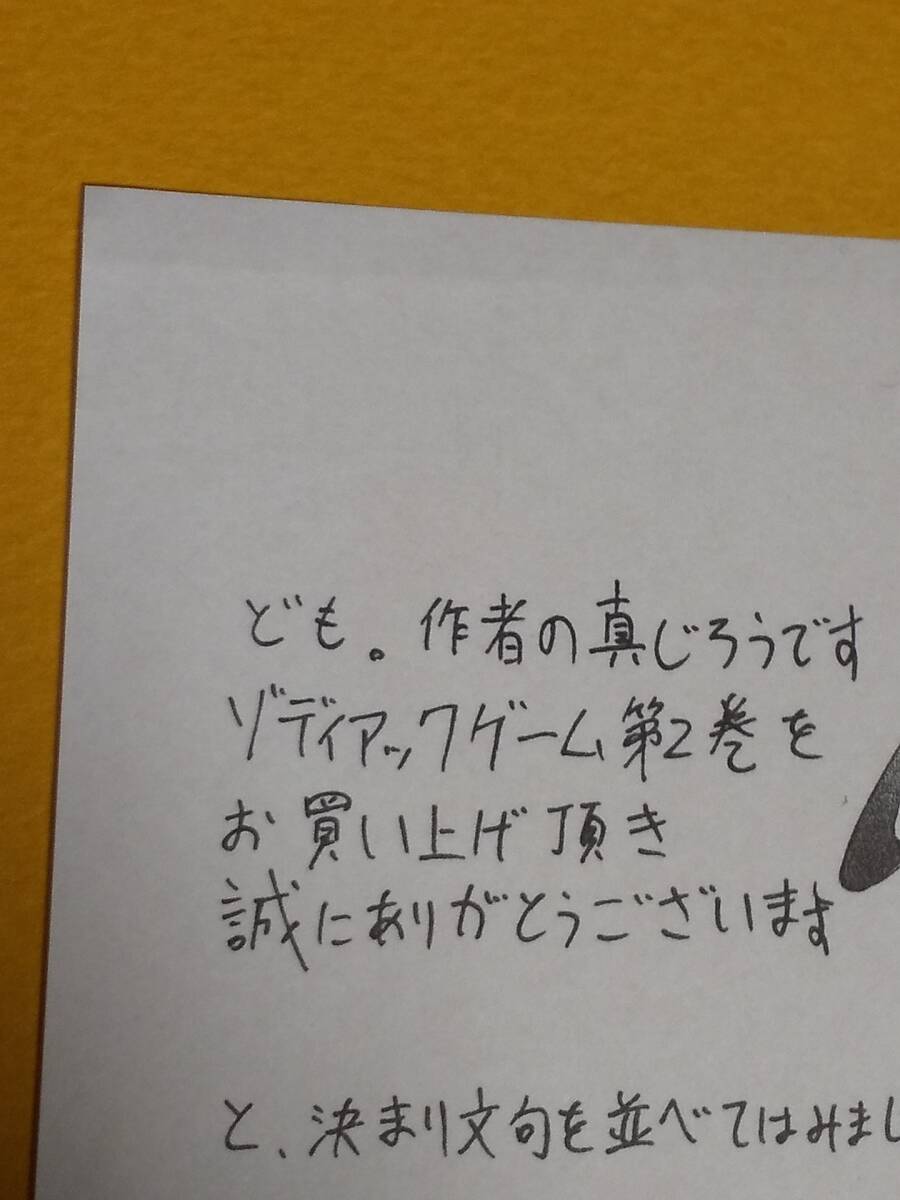 ども。作者の真じろうです
ゾディアックゲーム第2巻を
お買い上げ頂き
誠にありがとうございます
と、決まり文句を並べてはみまし